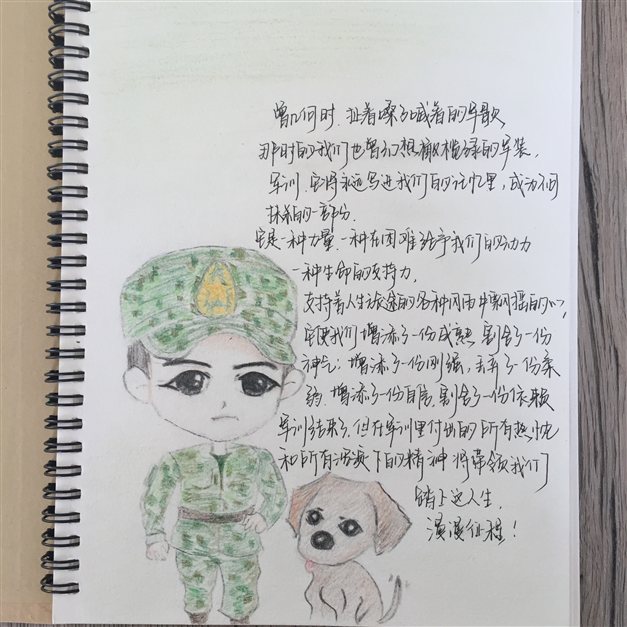 曾几何时，扯着嗓子喊着的军歌
那时的我们也曾幻想橄榄绿的军装，
军训，它将永远写进我们的记忆里，成为不可
抹杀的一部分。
它是一种力量，一种在困难给予我们的动力
一种生命的支持力，
支持着人生旅途的各种风雨中飘摇的心，
它使我们增添了一份成熟，割舍了一份
神气；增添了一份刚强，丢弃了一份柔
弱，增添了一份自信，割舍了一份依赖
军训结束了，但在军训里付出的所有热忱
和所有沉淀下的精神将带领我们
踏上这人生，
漫漫征程！